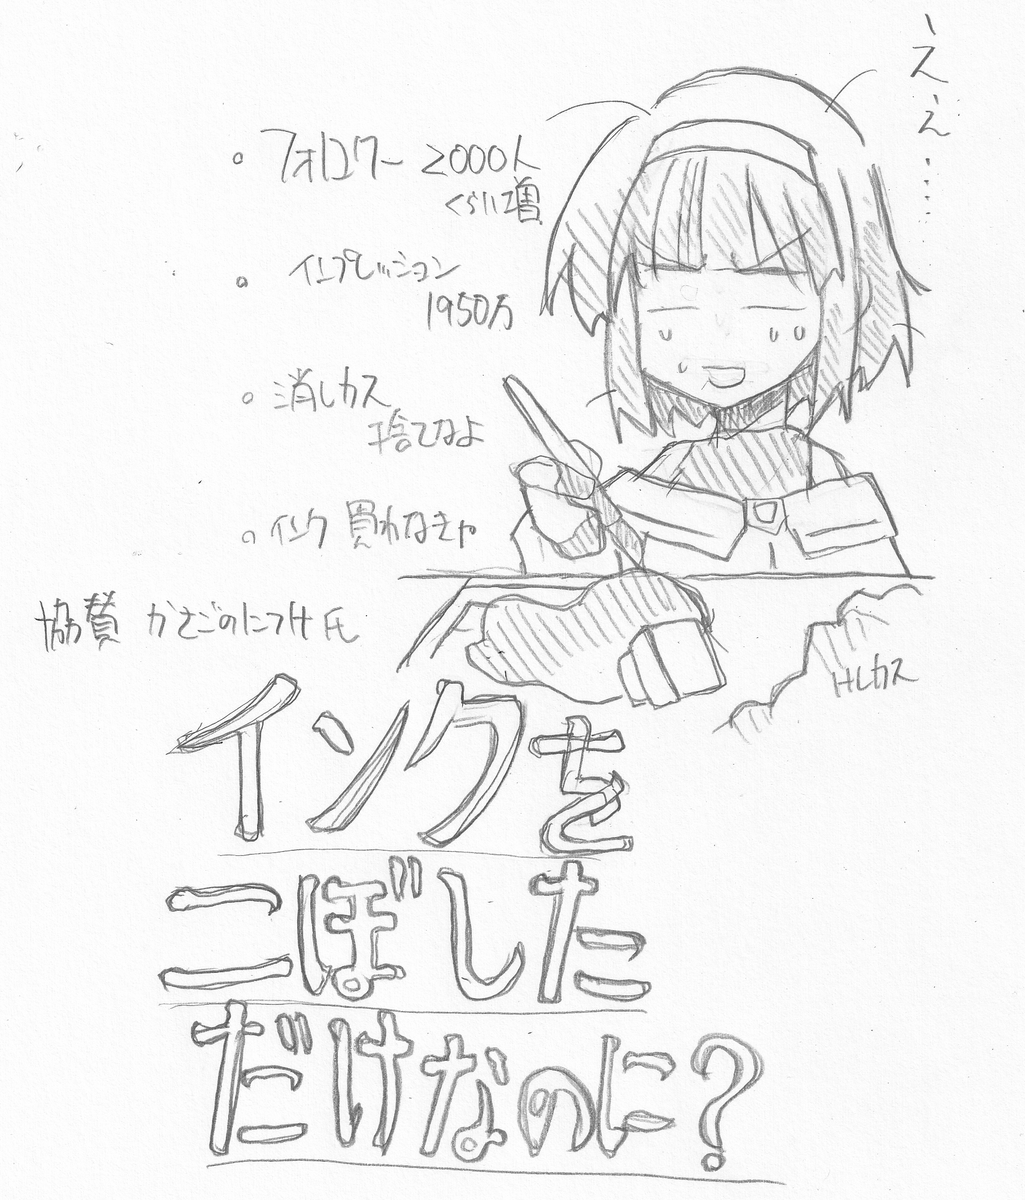 え、え……
・フォロワー 2000人
くらい増
・インプレッション
1950万
・消しカス
捨てなよ
・インク 買わなきゃ
協賛 かさごのにつけ氏
消しカス
インクを
こぼした
だけなのに？